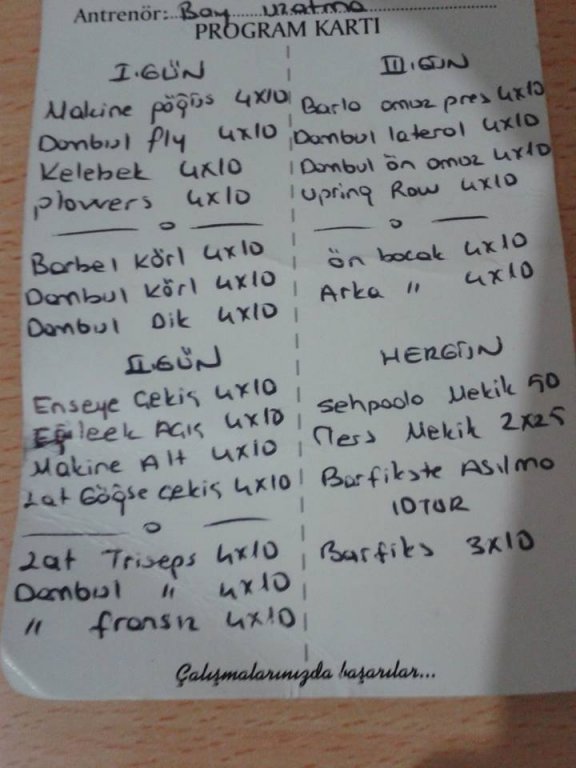 Antrenör: Bay uzatma
PROGRAM KARTI
I.GÜN
Makine göğüs 4x10
Dambul fly 4x10
Kelebek 4x10
plowers 4x10
Barbel körl 4x10
Dambul körl 4x10
Dambul Dik 4x10
II.GÜN
Enseye çekiş 4x10
leek Açış 4x10
Makine Alt 4x10
Lat Göğse çekiş 4x10
Lat Triseps 4x10
Dambul " 4x10
" fransız 4x10
III.GÜN
Barla omuz pres 4x10
Dambul lateral 4x10
Dambul ön omuz 4x10
upring Row 4x10
ön bacak 4x10
Arka " 4x10
HERGÜN
sehpada Mekik 50
Ters Mekik 2x25
Barfikste Asılma
10TUR
Barfiks 3x10
Çalışmalarınızda başarılar...